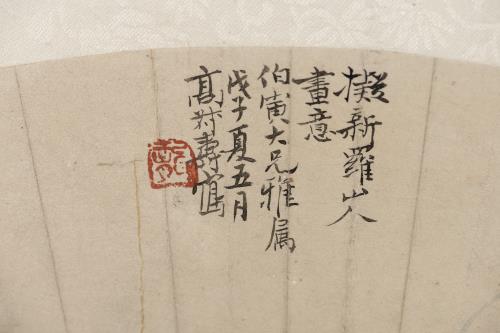 擬新羅山人
畫意
伯寅大兄雅属
戊子夏五月
髙壽寫